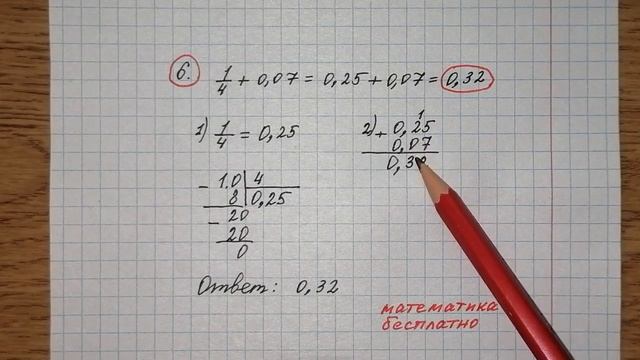 6. 1/4 + 0,07 = 0,25 + 0,07 = 0,32
1) 1/4 = 0,25
1,0 | 4
- 8 | 0,25
- 20
20
0
1
2) + 0,25
0,07
0,3
Ответ: 0,32
математика
бесплатно